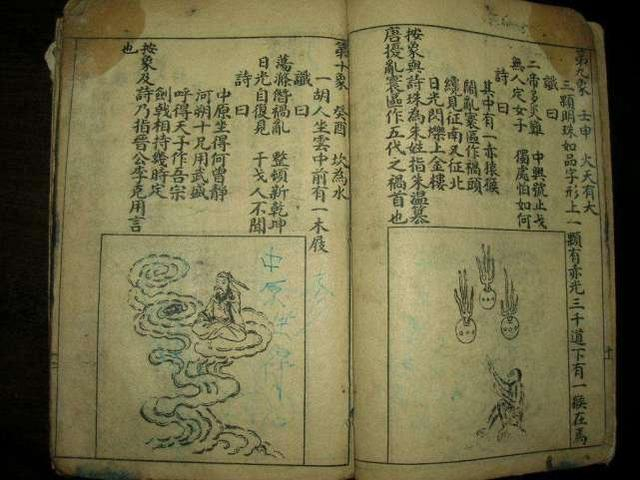 第九象 壬申 火天有大
三顆明珠如品字形上一顆有赤光三千道下有一猴在焉
讖曰
二帝多災難 中興號止戈
無人定女子 獨處怕如何
詩曰
其中有一赤猿猴
鬧亂寰區作禍頭
纔見征南又征北
日光閃爍上金樓
按象與詩珠為朱姓指朱溫篡
唐擾亂寰區作五代之禍首也
第十象 癸酉 坎為水
一胡人坐雲中前有一木屐
讖曰
蕩滌僭禍亂 整頓新乾坤
日光自復見 干戈人不聞
詩曰
中原生得何曾靜
河朔十兄用武盛
呼得天子作吾宗
劍戟相持幾時定
按象及詩乃指晉公李克用言
也
中原生得